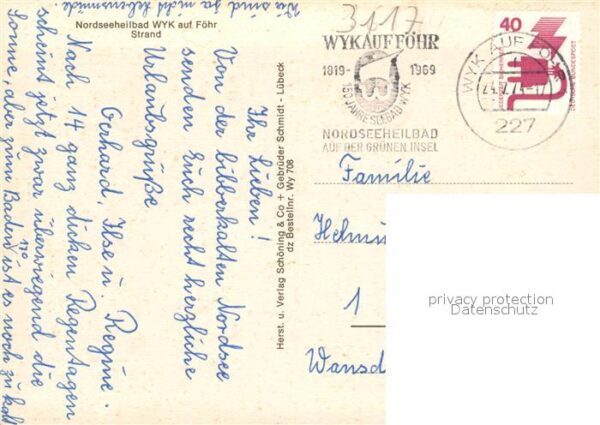 Nordseeheilbad WYK auf Föhr
Strand
Ihr Lieben!
Von der bibberkalten Nordsee
senden Euch recht herzliche
Urlaubsgrüße
Gerhard, Ilse u. Regine.
Nach 14 ganz dicken Regentagen
scheint jetzt zwar überwiegend die
Sonne, aber zum Baden ist es noch zu kalt
17°
Wir sind ja nicht lebensmüde.
Herst. u. Verlag Schöning & Co + Gebrüder Schmidt - Lübeck
dz Bestellnr. Wy 708
3117
WYK AUF FÖHR
1819- 1969
150 JAHRE SEEBAD WYK
NORDSEEHEILBAD
AUF DER GRÜNEN INSEL
WYK AUF
227
40
DEUTSCHE BUNDESPOST
Familie
Helmu
1
Wansd
privacy protection
Datenschutz